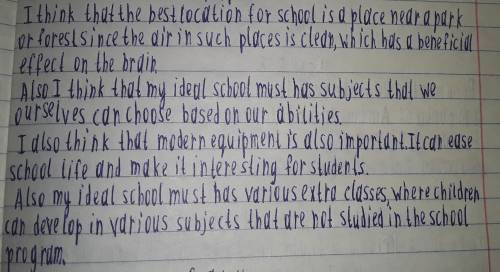 I think that the best location for school is a place near a park
or forest since the air in such places is clean, which has a beneficial
effect on the brain.
Also I think that my ideal school must has subjects that we
ourselves can choose based on our abilities.
I also think that modern equipment is also important. It can ease
school life and make it interesting for students.
Also my ideal school must has various extra classes, where children
can develop in various subjects that are not studied in the school
program.